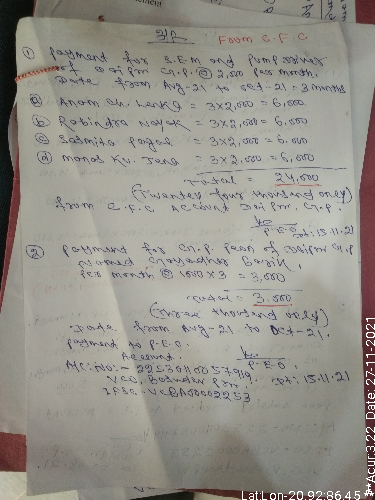 From C.F.C
① Payment for S.E.M and pump driver
of G.P. @ 2,000 per month.
Date from Aug-21 to Oct-21 = 3 months
ⓐ Anam Ch. Lenka = 3×2,000 = 6,000
ⓑ Rabindra Nayak = 3×2,000 = 6,000
ⓒ Sasmita = 3×2,000 = 6,000
ⓓ Manas Ku. Jena = 3×2,000 = 6,000
Total = 24,000
(Twenty four thousand only)
from C.F.C Account G.P.
P.E.O dt: 15.11.21
② Payment for G.P. peon of G.P
named Barik,
per month @ 1000×3 = 3,000
Total = 3,000
(Three thousand only)
Date from Aug-21 to Oct-21.
payment to P.E.O.
Account.
P.E.O
A/C. No:-
UCO, dt: 15.11.21
LatLon-20.92:86.45
**Acur:3.22 Date: 27-11-2021